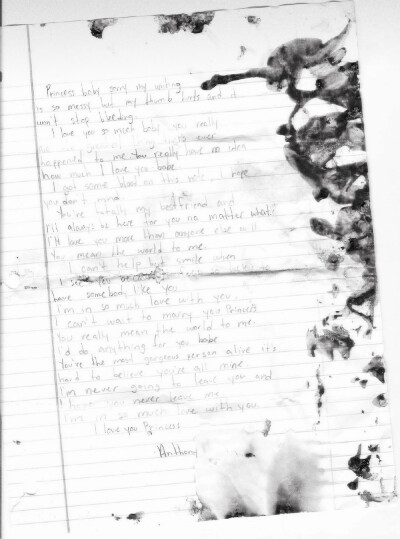 Princess baby sorry my writing
is so messy but my thumb hurts and it
won't stop bleeding
I love you so much babe you really
are ever
happened to me You really have no idea
how much I love you babe
I got some blood on this note, I hope
you don't mind
You're totally my bestfriend and
I'll always be here for you no matter what
I'll love you more than anyone else will
You mean the world to me
I can't help but smile when
I see
have somebody like you
I'm in so much love with you
I can't wait to marry you Princess
You really mean the world to me.
I'd do anything for you babe
You're the most gorgeous person alive it's
hard to believe you're all mine
I'm never going to leave you and
I hope you never leave me
I'm in so much love with you
I love you Princess
Anthony